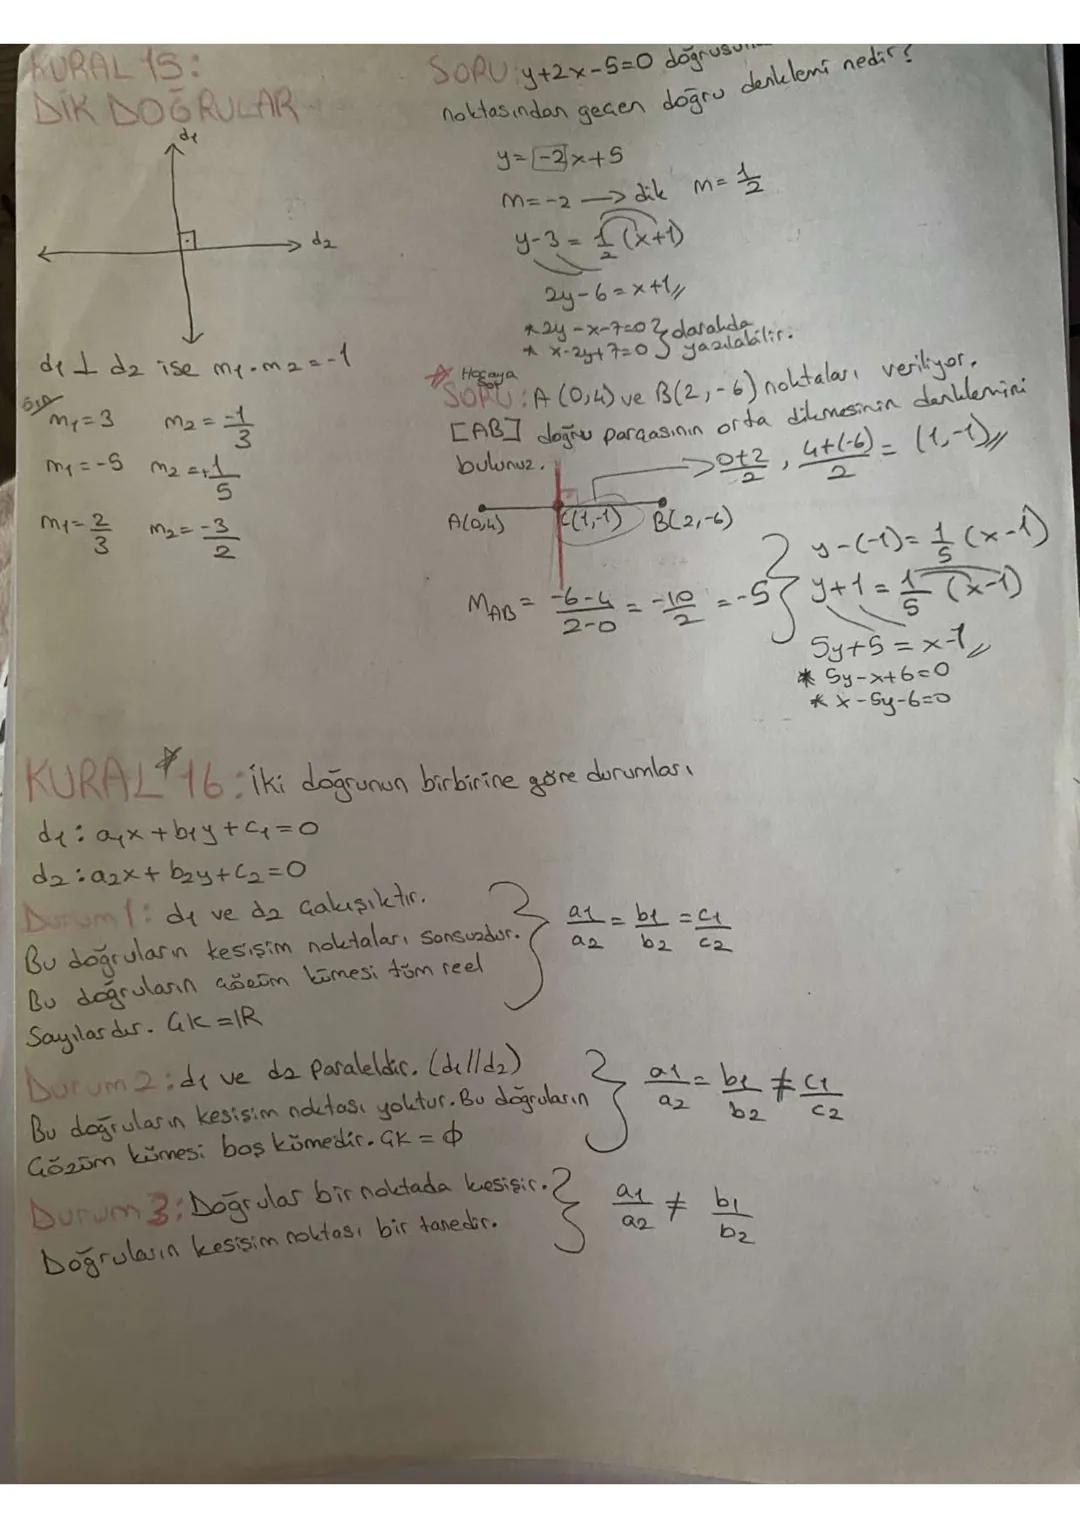 KURAL 15:
DİK DOĞRULAR
d1
d2
d1 ⊥ d2 ise m1 . m2 = -1
Örn
m1 = 3 m2 = -1/3
m1 = -5 m2 = +1/5
m1 = 2/3 m2 = -3/2
SORU: y+2x-5=0
noktasından geçen doğru denklemi nedir?
y = -2x+5
m = -2 → dik m = 1/2
y-3 = 1/2 (x+1)
2y-6 = x+1//
* 2y-x-7=0 } olarakda
* x-2y+7=0 } yazılabilir.
* Hocaya Sor
SORU: A(0,4) ve B(2,-6) noktaları veriliyor.
[AB] doğru parçasının orta dikmesinin denklemini
bulunuz. → 0+2/2 , 4+(-6)/2 = (1,-1)//
A(0,4) C(1,-1) B(2,-6)
MAB = -6-4/2-0 = -10/2 = -5
y-(-1) = 1/5 (x-1)
y+1 = 1/5 (x-1)
5y+5 = x-1//
* 5y-x+6=0
* x-5y-6=0
KURAL* 16: İki doğrunun birbirine göre durumları
d1: a1x + b1y + c1 = 0
d2: a2x + b2y + c2 = 0
Durum 1: d1 ve d2 Çakışıktır.
Bu doğruların kesişim noktaları sonsuzdur.
Bu doğruların çözüm kümesi tüm reel
Sayılardır. ÇK = IR
a1/a2 = b1/b2 = c1/c2
Durum 2: d1 ve d2 Paraleldir. (d1//d2)
Bu doğruların kesişim noktası yoktur. Bu doğruların
Çözüm kümesi boş kümedir. ÇK = ϕ
a1/a2 = b1/b2 ≠ c1/c2
Durum 3: Doğrular bir noktada kesişir.
Doğruların kesişim noktası bir tanedir.
a1/a2 ≠ b1/b2